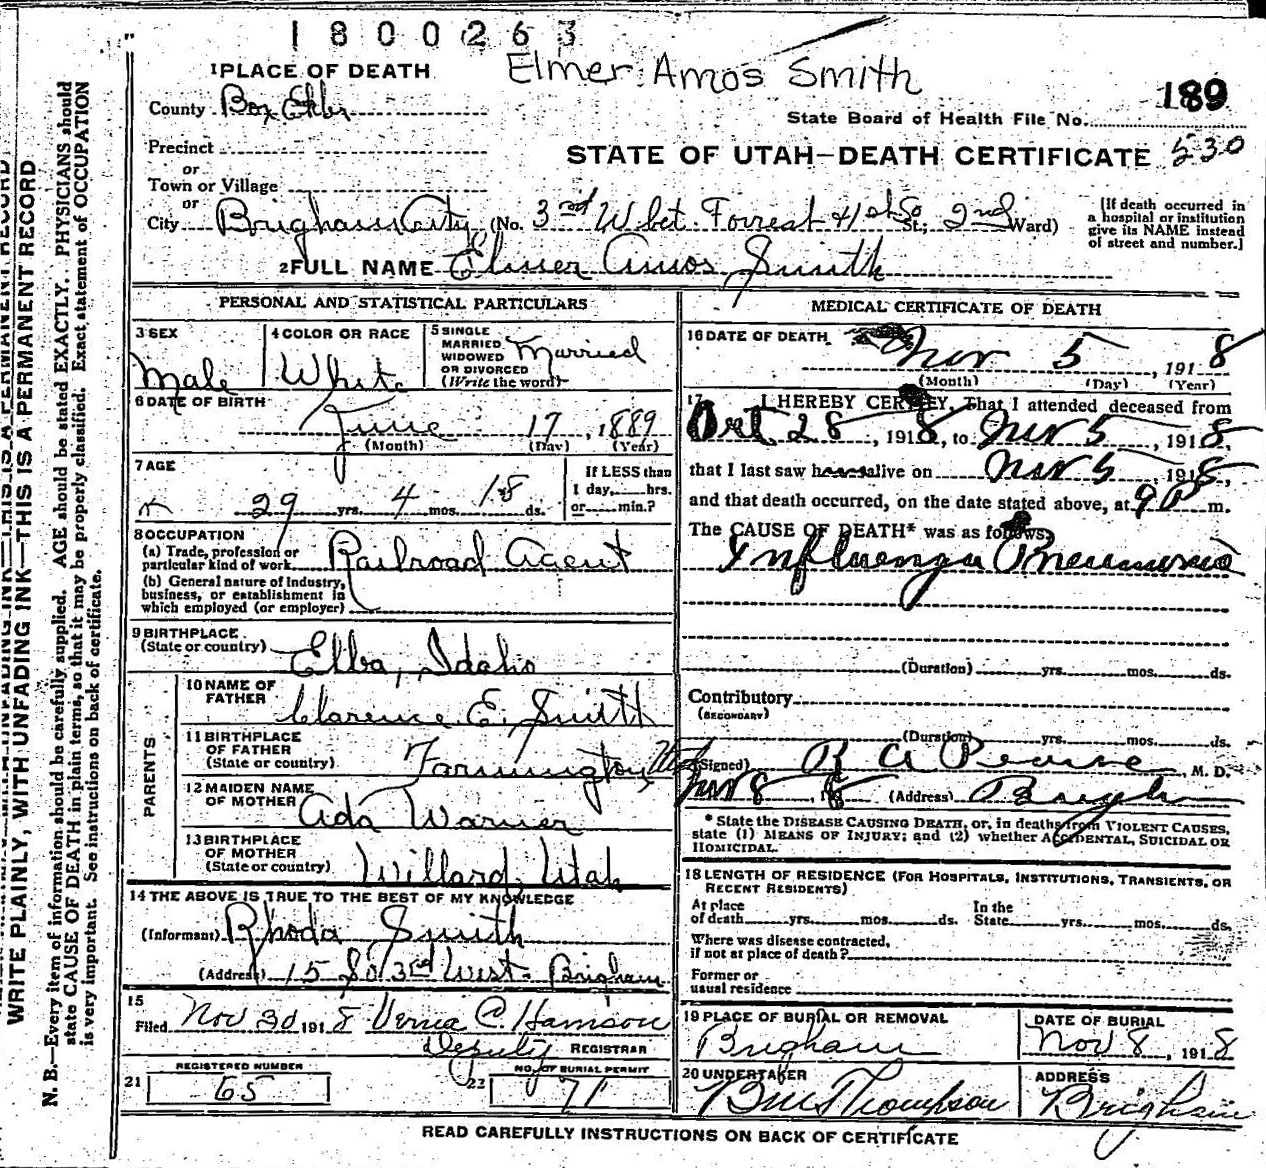 1800263
Elmer Amos Smith
1 PLACE OF DEATH
189
County Box Elder
State Board of Health File No.
Precinct
STATE OF UTAH—DEATH CERTIFICATE 530
or
Town or Village
or
City Brigham City (No. 3rd W bet. Forrest & 1st So St.; 2nd Ward)
[If death occurred in
a hospital or institution
give its NAME instead
of street and number.]
2 FULL NAME Elmer Amos Smith
PERSONAL AND STATISTICAL PARTICULARS
3 SEX
Male
4 COLOR OR RACE
White
5 SINGLE
MARRIED
WIDOWED
OR DIVORCED
(Write the word)
Married
6 DATE OF BIRTH
June 17, 1889
(Month) (Day) (Year)
7 AGE
29 yrs. 4 mos. 18 ds.
If LESS than
1 day, hrs.
or min.?
8 OCCUPATION
(a) Trade, profession or
particular kind of work Railroad Agent
(b) General nature of industry,
business, or establishment in
which employed (or employer)
9 BIRTHPLACE
(State or country) Elba, Idaho
PARENTS
10 NAME OF
FATHER
Clarence E. Smith
11 BIRTHPLACE
OF FATHER
(State or country) Farmington, Utah
12 MAIDEN NAME
OF MOTHER
Ada Warner
13 BIRTHPLACE
OF MOTHER
(State or country) Willard, Utah
14 THE ABOVE IS TRUE TO THE BEST OF MY KNOWLEDGE
(Informant) Rhoda Smith
(Address) 15 So 3rd West Brigham
15
Filed Nov 30 1918 Verna C. Hamson
Deputy REGISTRAR
REGISTERED NUMBER
21 65
NO. OF BURIAL PERMIT
22 71
MEDICAL CERTIFICATE OF DEATH
16 DATE OF DEATH
Nov 5, 1918
(Month) (Day) (Year)
17 I HEREBY CERTIFY, That I attended deceased from
Oct 28, 1918, to Nov 5, 1918,
that I last saw h alive on Nov 5, 1918,
and that death occurred, on the date stated above, at 9 P m.
The CAUSE OF DEATH* was as follows:
Influenza Pneumonia
(Duration) yrs. mos. ds.
Contributory
(SECONDARY)
(Duration) yrs. mos. ds.
(Signed) R A Pearse, M. D.
Nov 8, 18 (Address) Brigham
* State the DISEASE CAUSING DEATH, or, in deaths from VIOLENT CAUSES,
state (1) MEANS OF INJURY; and (2) whether ACCIDENTAL, SUICIDAL OR
HOMICIDAL.
18 LENGTH OF RESIDENCE (FOR HOSPITALS, INSTITUTIONS, TRANSIENTS, OR
RECENT RESIDENTS)
At place
of death yrs. mos. ds.
In the
State yrs. mos. ds.
Where was disease contracted,
if not at place of death?
Former or
usual residence
19 PLACE OF BURIAL OR REMOVAL
Brigham
DATE OF BURIAL
Nov 8, 1918
20 UNDERTAKER
Thompson
ADDRESS
Brigham
READ CAREFULLY INSTRUCTIONS ON BACK OF CERTIFICATE
WRITE PLAINLY, WITH UNFADING INK—THIS IS A PERMANENT RECORD
N. B.—Every item of information should be carefully supplied. AGE should be stated EXACTLY. PHYSICIANS should
state CAUSE OF DEATH in plain terms, so that it may be properly classified. Exact statement of OCCUPATION
is very important. See instructions on back of certificate.